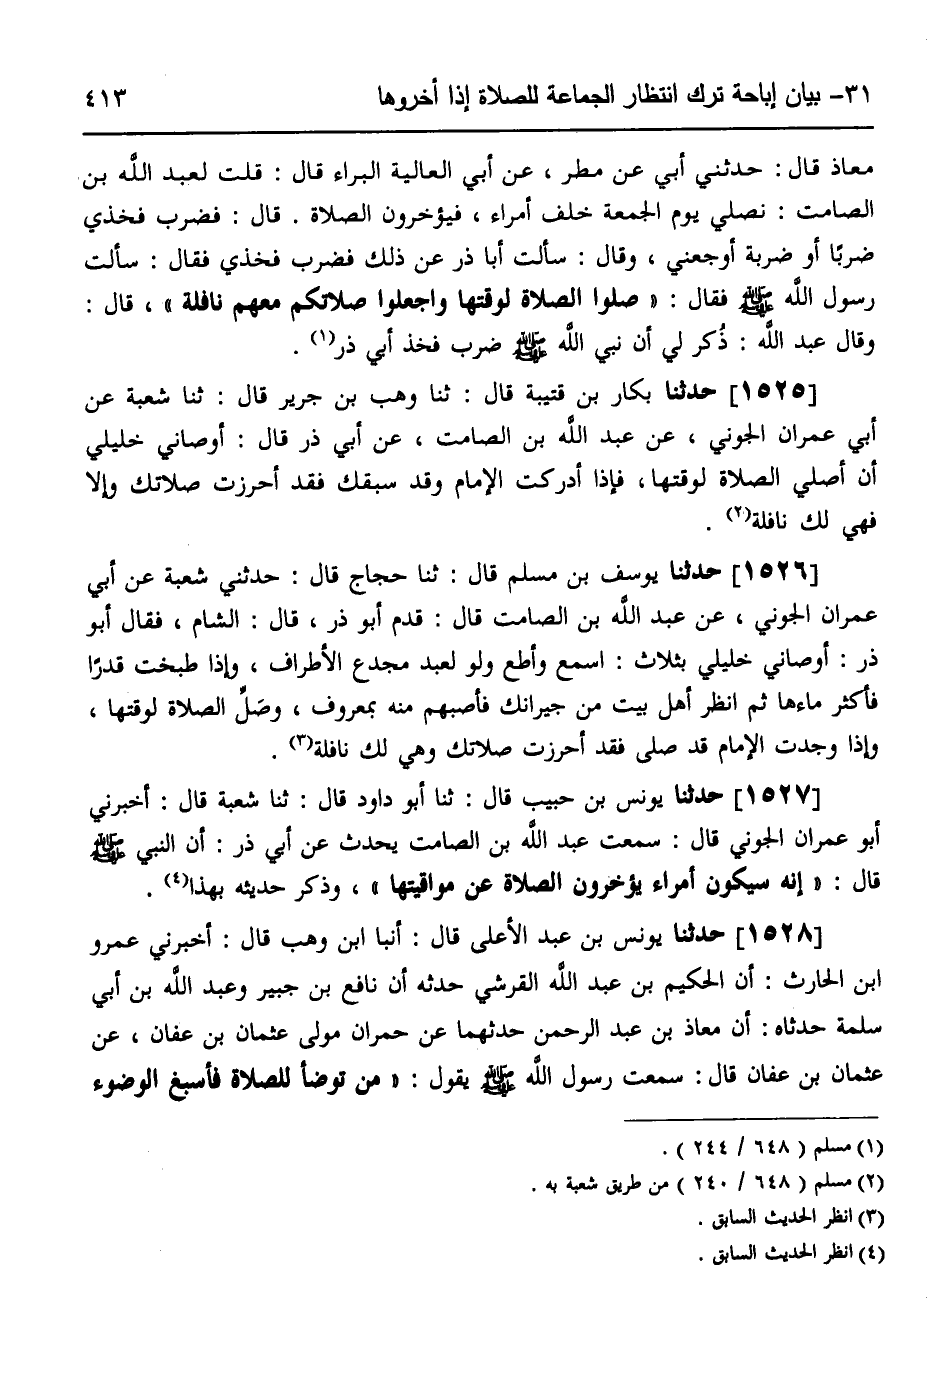 ٣١- بيان إباحة ترك انتظار الجماعة للصلاة إذا أخروها ٤١٣
معاذ قال : حدثني أبي عن مطر ، عن أبي العالية البراء قال : قلت لعبد اللَّه بن
الصامت : نصلي يوم الجمعة خلف أمراء ، فيؤخرون الصلاة . قال : فضرب فخذي
ضربًا أو ضربة أوجعني ، وقال : سألت أبا ذر عن ذلك فضرب فخذي فقال : سألت
رسول اللَّه ﷺ فقال : « صلوا الصلاة لوقتها واجعلوا صلاتكم معهم نافلة » ، قال :
وقال عبد اللَّه : ذُكر لي أن نبي اللَّه ﷺ ضرب فخذ أبي ذر(١) .
[١٥٢٥] حدثنا بكار بن قتيبة قال : ثنا وهب بن جرير قال : ثنا شعبة عن
أبي عمران الجوني ، عن عبد اللَّه بن الصامت ، عن أبي ذر قال : أوصاني خليلي
أن أصلي الصلاة لوقتها ، فإذا أدركت الإمام وقد سبقك فقد أحرزت صلاتك وإلا
فهي لك نافلة(٢) .
[١٥٢٦] حدثنا يوسف بن مسلم قال : ثنا حجاج قال : حدثني شعبة عن أبي
عمران الجوني ، عن عبد اللَّه بن الصامت قال : قدم أبو ذر ، قال : الشام ، فقال أبو
ذر : أوصاني خليلي بثلاث : اسمع وأطع ولو لعبد مجدع الأطراف ، وإذا طبخت قدرًا
فأكثر ماءها ثم انظر أهل بيت من جيرانك فأصبهم منه بمعروف ، وصَلِّ الصلاة لوقتها ،
وإذا وجدت الإمام قد صلى فقد أحرزت صلاتك وهي لك نافلة(٣) .
[١٥٢٧] حدثنا يونس بن حبيب قال : ثنا أبو داود قال : ثنا شعبة قال : أخبرني
أبو عمران الجوني قال : سمعت عبد اللَّه بن الصامت يحدث عن أبي ذر : أن النبي ﷺ
قال : « إنه سيكون أمراء يؤخرون الصلاة عن مواقيتها » ، وذكر حديثه بهذا(٤) .
[١٥٢٨] حدثنا يونس بن عبد الأعلى قال : أنبا ابن وهب قال : أخبرني عمرو
ابن الحارث : أن الحكيم بن عبد اللَّه القرشي حدثه أن نافع بن جبير وعبد اللَّه بن أبي
سلمة حدثاه : أن معاذ بن عبد الرحمن حدثهما عن حمران مولى عثمان بن عفان ، عن
عثمان بن عفان قال : سمعت رسول اللَّه ﷺ يقول : « من توضأ للصلاة فأسبغ الوضوء
(١) مسلم ( ٦٤٨ / ٢٤٤ ) .
(٢) مسلم ( ٦٤٨ / ٢٤٠ ) من طريق شعبة به .
(٣) انظر الحديث السابق .
(٤) انظر الحديث السابق .